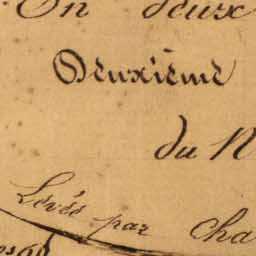 En deux
Deuxième
du N
Levée par Cha